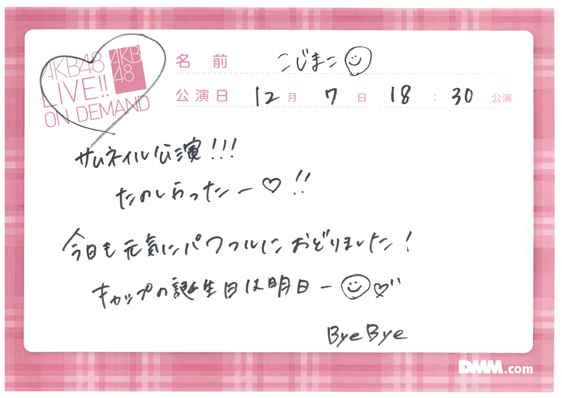 AKB48
LIVE!!
ON DEMAND
AKB
48
名前 こじまこ
公演日 12月 7日 18:30 公演
サムネイル公演!!!
たのしらったー♡!!
今日も元気にパワフルにおどりました!
キャップの誕生日は明日ー
ByeBye
DMM.com